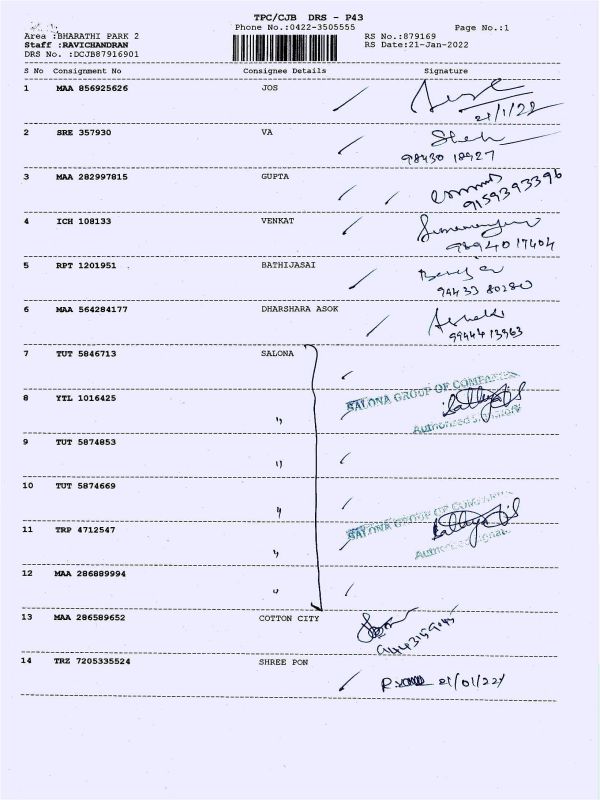 TPC/CJB DRS - P43
Phone No.:0422-3505555 Page No.:1
Area :BHARATHI PARK 2 RS No.:879169
Staff :RAVICHANDRAN RS Date:21-Jan-2022
DRS No. :DCJB87916901
S No Consignment No Consignee Details Signature
1 MAA 856925626 JOS
21/1/22
2 SRE 357930 VA
98430 18927
3 MAA 282997815 GUPTA
9159393396
4 ICH 108133 VENKAT
9894017404
5 RPT 1201951 BATHIJASAI
94433 80280
6 MAA 564284177 DHARSHARA ASOK
Ashok
9944413963
7 TUT 5846713 SALONA
8 YTL 1016425 "
SALONA GROUP OF COMPANIES
Authorized Signatory
9 TUT 5874853 "
10 TUT 5874669 "
SALONA GROUP OF COMPANIES
11 TRP 4712547 "
Authorized Signatory
12 MAA 286889994 "
13 MAA 286589652 COTTON CITY
14 TRZ 7205335524 SHREE PON
21/01/22